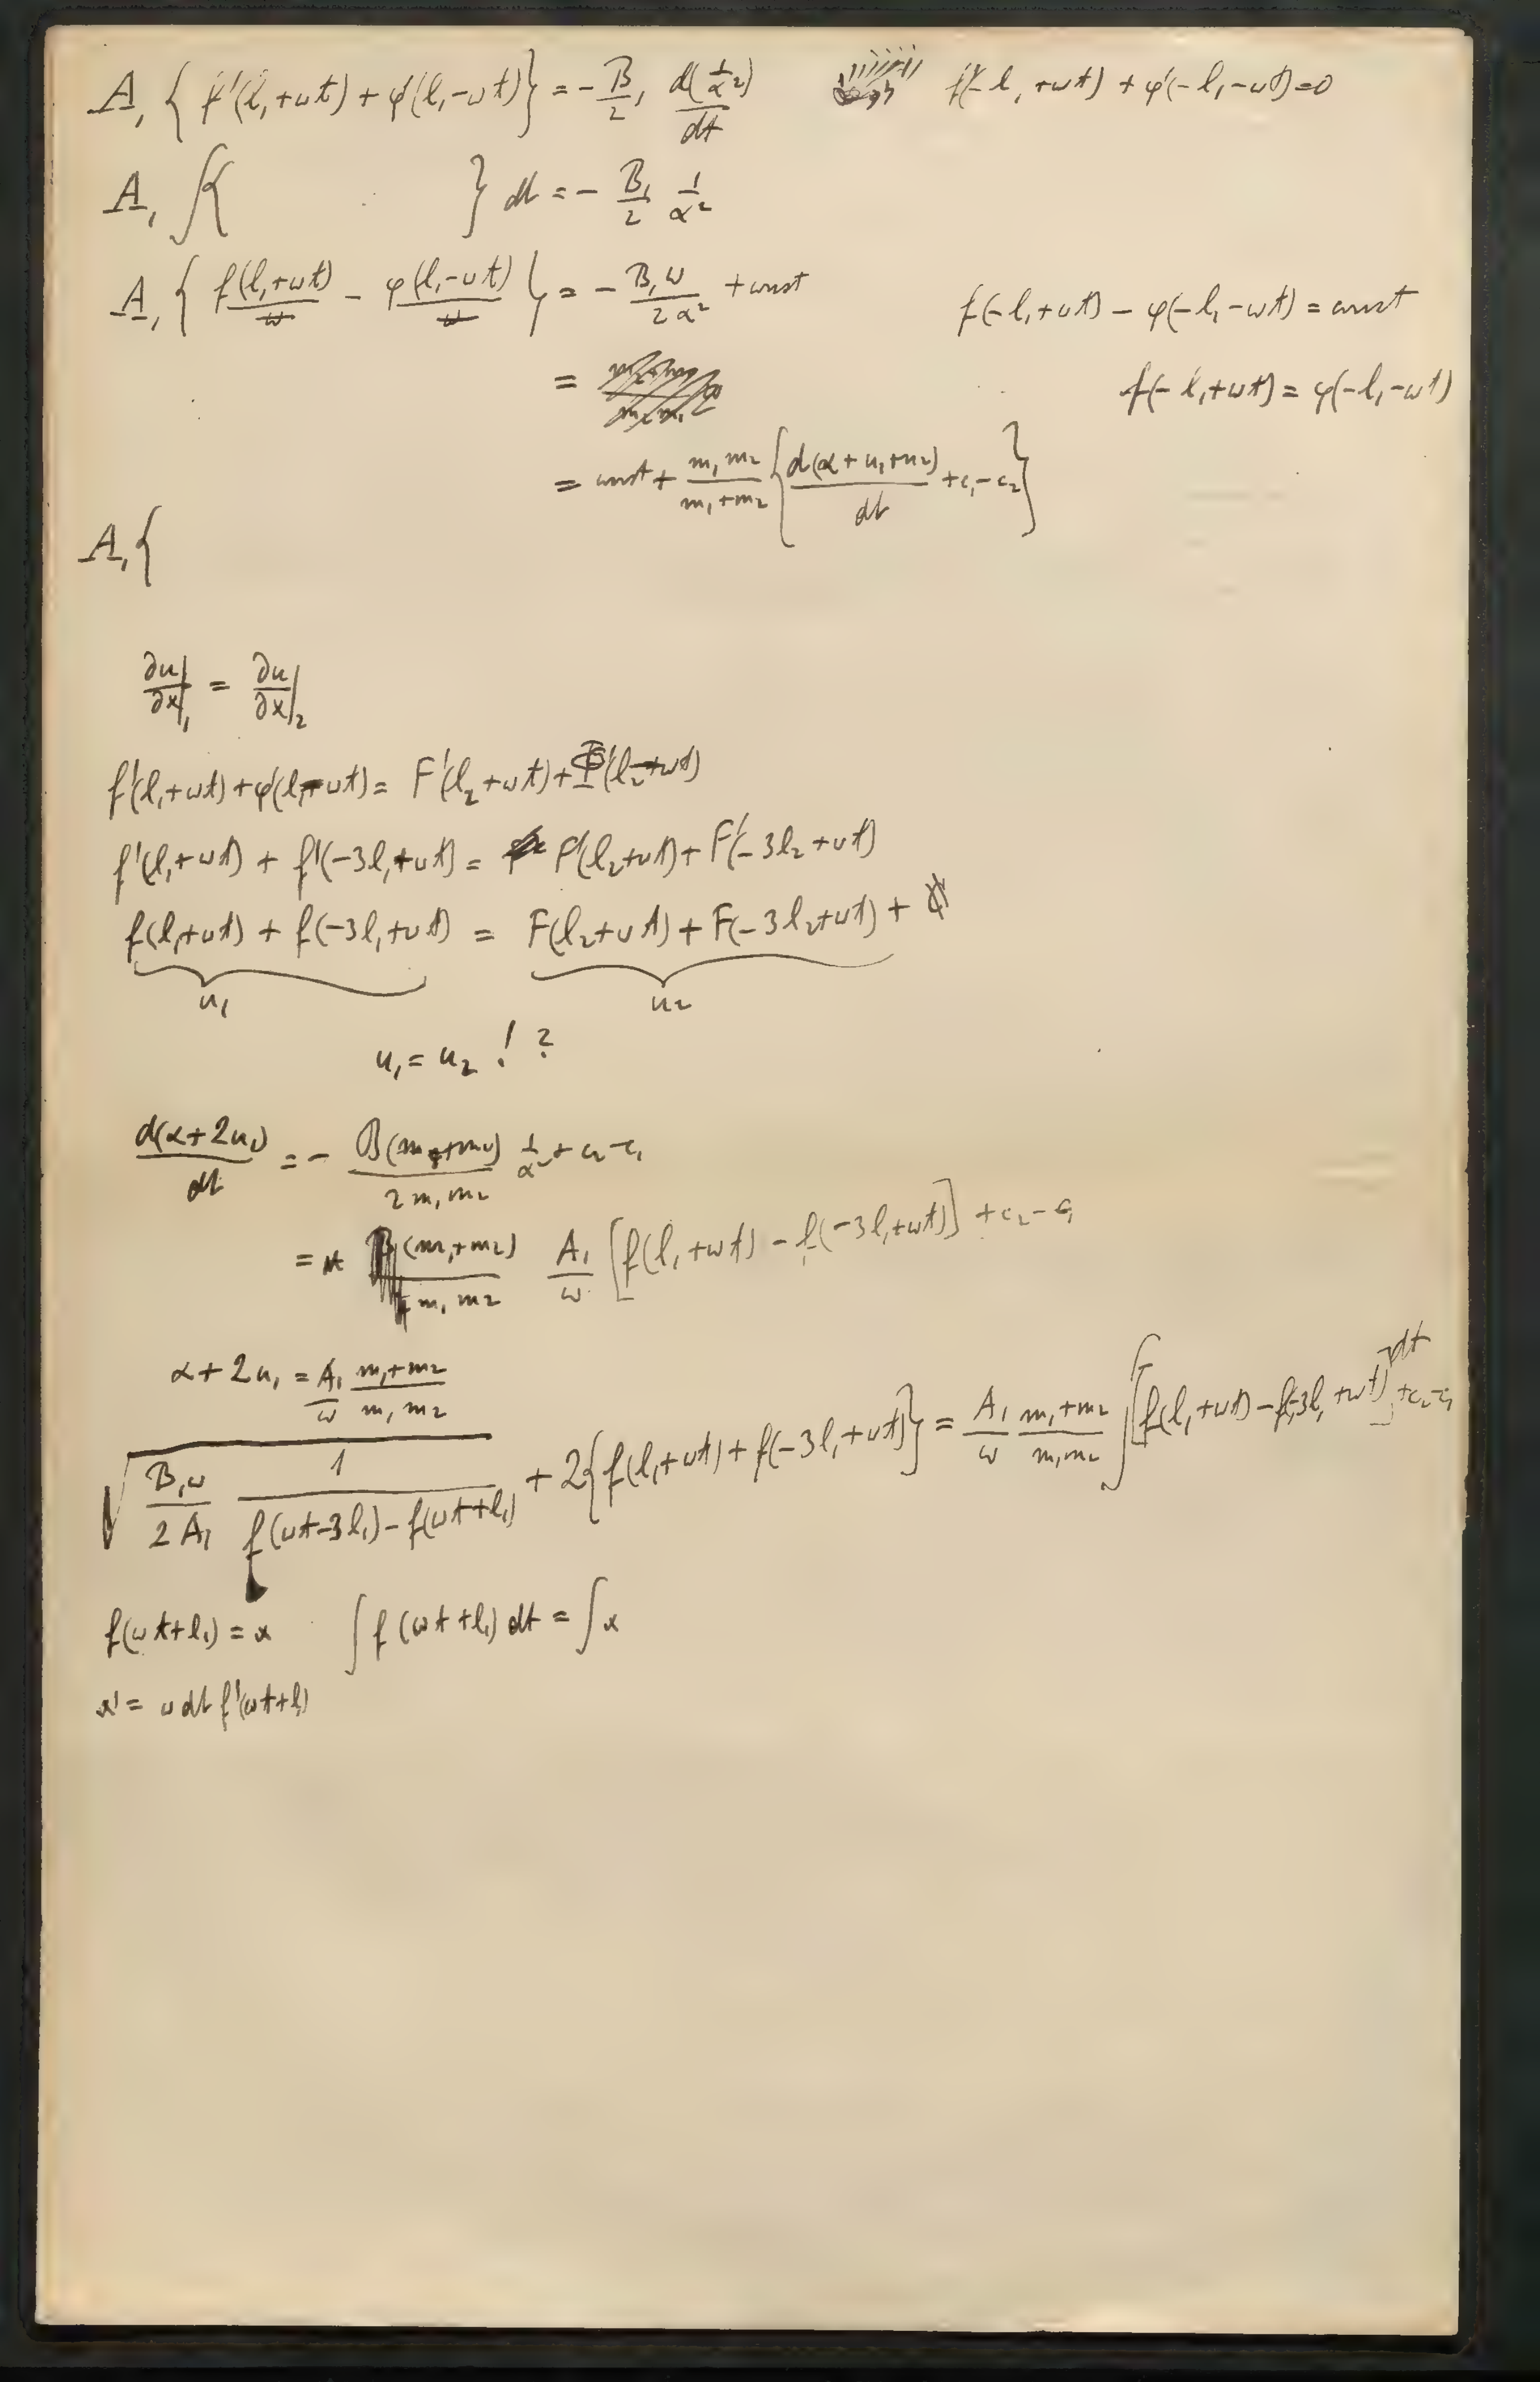 A₁ { f'(l₁+ωt) + φ'(l₁-ωt) } = - B₁/2 d(1/α²)/dt    f'(-l₁+ωt) + φ'(-l₁-ωt) = 0
A₁ ∫{ } dt = - B₁/2 1/α²
A₁ { f(l₁+ωt)/ω - φ(l₁-ωt)/ω } = - B₁ω/2α² + const    f(-l₁+ωt) - φ(-l₁-ωt) = const
=    f(-l₁+ωt) = φ(-l₁-ωt)
= const + m₁m₂/(m₁+m₂) { d(α+u₁+u₂)/dt + c₁-c₂ }
A₁ {
∂u/∂x|₁ = ∂u/∂x|₂
f'(l₁+ωt) + φ'(l₁-ωt) = F'(l₂+ωt) + Φ'(l₂-ωt)
f'(l₁+ωt) + f'(-3l₁+ωt) = F'(l₂+ωt) + F'(-3l₂+ωt)
f(l₁+ωt) + f(-3l₁+ωt) = F(l₂+ωt) + F(-3l₂+ωt) +
u₁    u₂
u₁ = u₂ ! ?
d(α+2u₁)/dt = - B(m₁+m₂)/2m₁m₂ 1/α² + c₂-c₁
= (m₁+m₂)/m₁m₂ A₁/ω [f(l₁+ωt) - f(-3l₁+ωt)] + c₂-c₁
α + 2u₁ = A₁/ω (m₁+m₂)/m₁m₂
√( B₁ω/2A₁ 1/(f(ωt-3l₁) - f(ωt+l₁)) ) + 2{f(l₁+ωt) + f(-3l₁+ωt)} = A₁/ω (m₁+m₂)/m₁m₂ ∫[f(l₁+ωt) - f(-3l₁+ωt)] dt + c₂-c₁
f(ωt+l₁) = x    ∫ f(ωt+l₁) dt = ∫x
x' = ω dt f'(ωt+l₁)